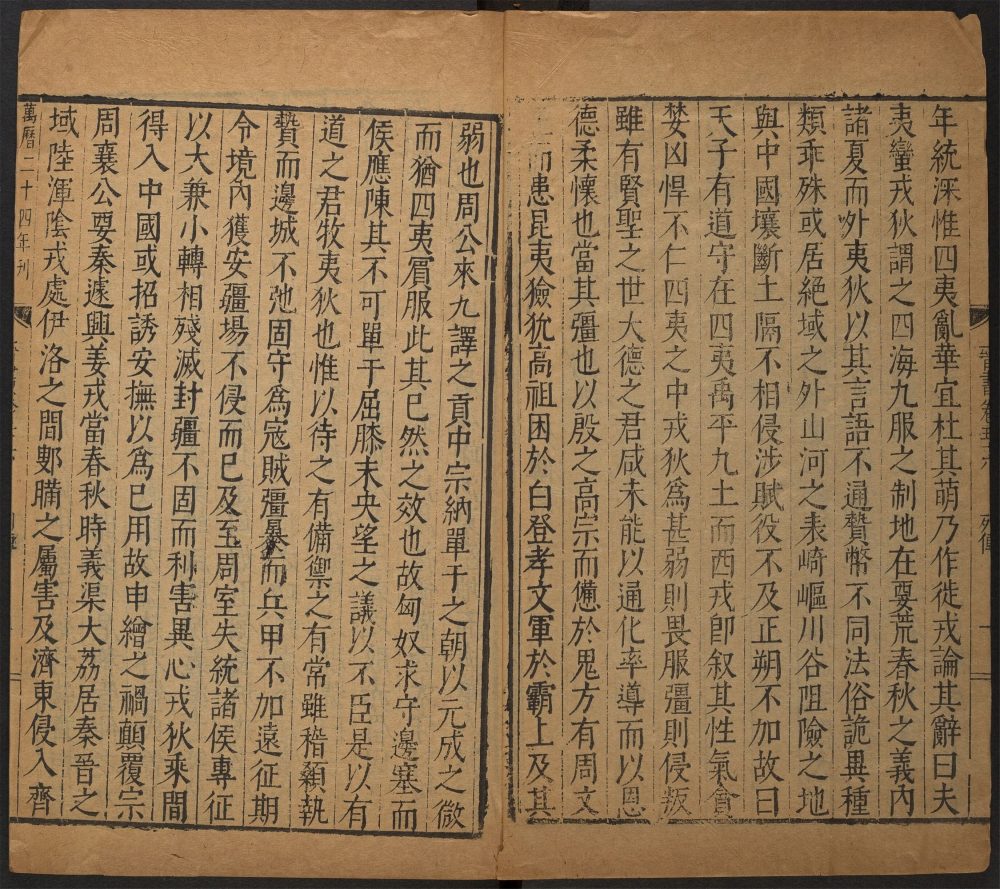 年統深惟四夷亂華宜杜其萌乃作徙戎論其辭曰夫
夷蠻戎狄謂之四海九服之制地在要荒春秋之義內
諸夏而外夷狄以其言語不通贄幣不同法俗詭異種
類乖殊或居絕域之外山河之表崎嶇川谷阻險之地
與中國壤斷土隔不相侵涉賦役不及正朔不加故曰
天子有道守在四夷禹平九土而西戎卽叙其性氣貪
婪凶悍不仁四夷之中戎狄爲甚弱則畏服彊則侵叛
雖有賢聖之世大德之君咸未能以通化率導而以恩
德柔懷也當其彊也以殷之高宗而憊於鬼方有周文
而患昆夷獫狁高祖困於白登孝文軍於霸上及其
弱也周公來九譯之貢中宗納單于之朝以元成之微
而猶四夷賓服此其已然之效也故匈奴求守邊塞而
侯應陳其不可單于屈膝未央望之議以不臣是以有
道之君牧夷狄也惟以待之有備禦之有常雖稽顙執
贄而邊城不弛固守爲寇賊彊暴而兵甲不加遠征期
令境內獲安疆場不侵而已及至周室失統諸侯專征
以大兼小轉相殘滅封疆不固而利害異心戎狄乘間
得入中國或招誘安撫以爲已用故申繒之禍顛覆宗
周襄公要秦遽興姜戎當春秋時義渠大荔居秦晉之
域陸渾陰戎處伊洛之間鄋瞞之屬害及濟東侵入齊
萬曆二十四年刊